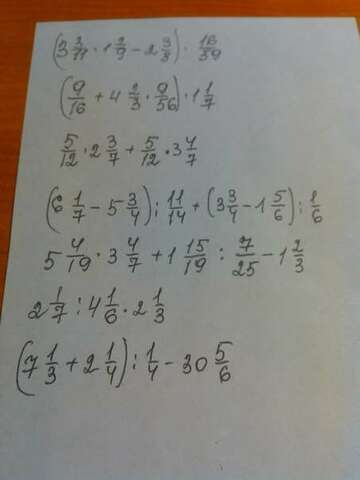 (3 3/11 · 1 2/9 - 2 3/8) · 16/39
(9/16 + 4 2/3 · 9/56) · 1 1/7
5/12 · 2 3/7 + 5/12 · 3 4/7
(6 1/7 - 5 3/4) : 11/14 + (3 3/4 - 1 5/6) : 1/6
5 4/19 · 3 4/7 + 1 15/19 : 7/25 - 1 2/3
2 1/7 : 4 1/6 · 2 1/3
(7 1/3 + 2 1/4) : 1/4 - 30 5/6